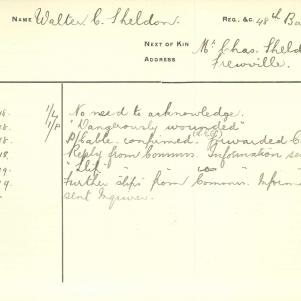 NAME Walter C. Sheldon. REG. &C. 48th Ba
NEXT OF KIN Mr Chas. Sheld
ADDRESS Frewville.
18. 1/4 No need to acknowledge.
18. 1/8 "Dangerously wounded"
18. P/Cable. confirmed. Forwarded C
18. Reply from Commns. Information se
19. "Slip" " " "
19. Further slips from Commns. Inform
sent Inquirer.